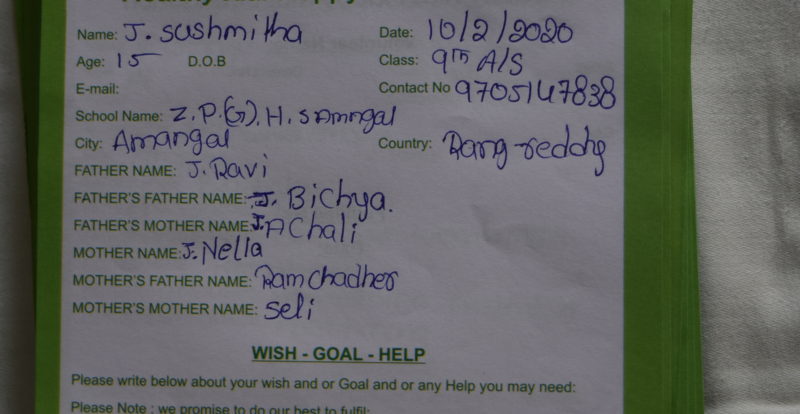 Name: J. sushmitha Date: 10/2/2020
Age: 15 D.O.B Class: 9th A/S
E-mail: Contact No 9705147838
School Name: Z.P.(G).H.S Amngal
City: Amangal Country: Rang reddy
FATHER NAME: J. Ravi
FATHER'S FATHER NAME: J. Bichya.
FATHER'S MOTHER NAME: J. Achali
MOTHER NAME: J. Nella
MOTHER'S FATHER NAME: Ram chadher
MOTHER'S MOTHER NAME: Seli
WISH - GOAL - HELP
Please write below about your wish and or Goal and or any Help you may need:
Please Note : we promise to do our best to fulfil: